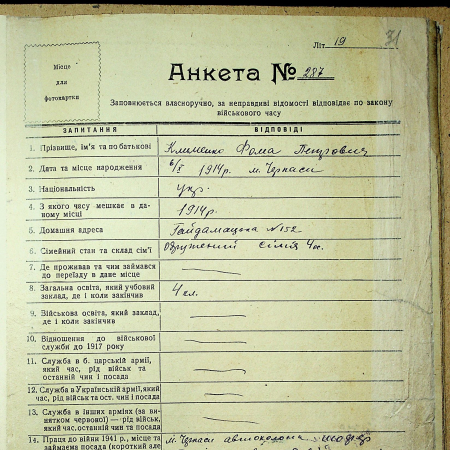 Літ 19 31
Місце
для
фотокартки
Анкета № 287
Заповнюється власноручно, за неправдиві відомості відповідає по закону
військового часу
ЗАПИТАННЯ ВІДПОВІДІ
1. Прізвище, ім'я та по батькові Клименко Фома Петрович
2. Дата та місце народження 6/X 1914 р. м. Черкаси
3. Національність укр.
4. З якого часу мешкає в даному місці 1914 р.
5. Домашня адреса Гайдамацька №152
6. Сімейний стан та склад сім'ї одружений сімія 4 ос.
7. Де проживав та чим займався
до переїзду в дане місце
8. Загальна освіта, який учбовий
заклад, де і коли закінчив 4 кл.
9. Військова освіта, який заклад,
де і коли закінчив
10. Відношення до військової
служби до 1917 року
11. Служба в б. царській армії,
який час, рід військ та
останній чин і посада
12. Служба в Українській армії, який
час, рід військ та ост. чин і посада
13. Служба в інших арміях (за винятком
червоної) — рід військ,
який час, останній чин та посада
14. Праця до війни 1941 р., місце та м. Черкаси автоколона шофер
займаєма посада (короткий але